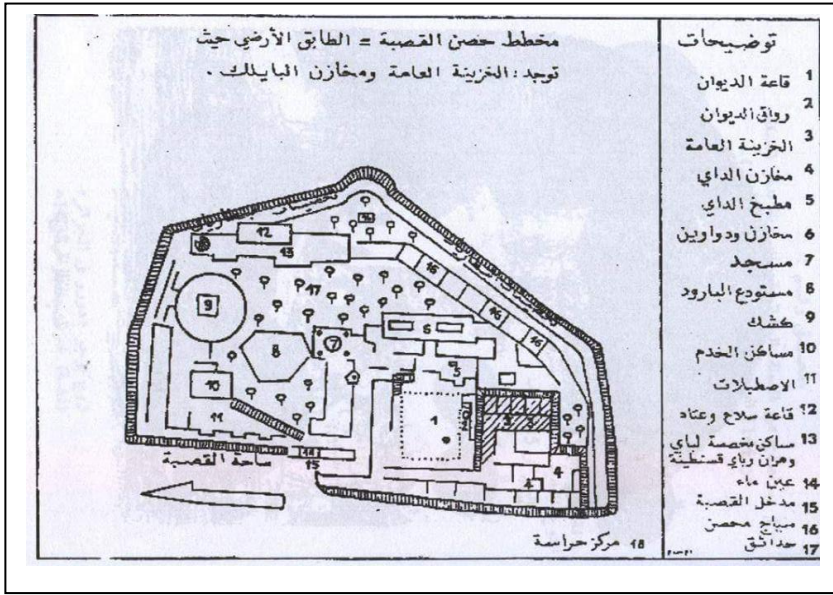 مخطط حصن القصبة = الطابق الأرضي حيث
توجد: الخزينة العامة ومخازن البايلك.
توضيحات
1 قاعة الديوان
2 رواق الديوان
3 الخزينة العامة
4 مخازن الداي
5 مطبخ الداي
6 مخازن ودواوين
7 مسجد
8 مستودع البارود
9 كشك
10 مساكن الخدم
11 الاصطبلات
12 قاعة سلاح وعتاد
13 مساكن مخصصة لباي
وهران وباي قسنطينة
14 عين ماء
15 مدخل القصبة
16 سياج محصن
17 حدائق
18 مركز حراسة
ساحة القصبة
12
13
14
16
17
9
6
16
16
8
7
5
10
1
2
3
3
11
14
15
4
4